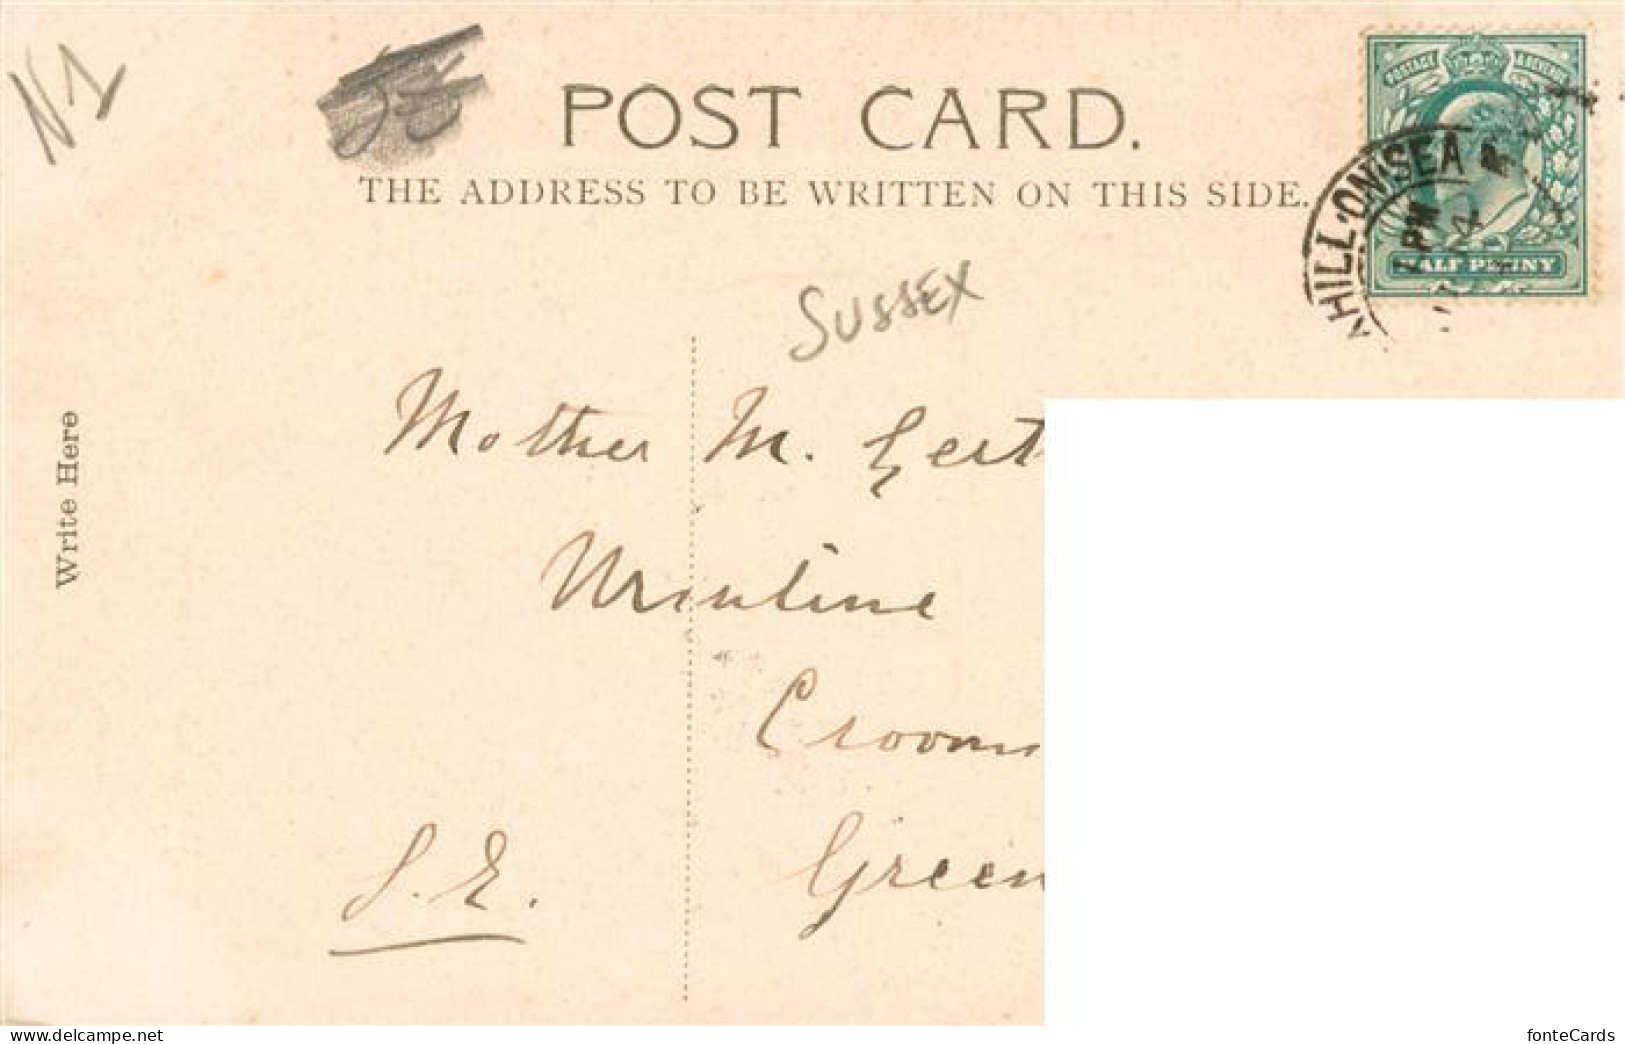 N1
POST CARD.
THE ADDRESS TO BE WRITTEN ON THIS SIDE.
POSTAGE & REVENUE
HALF PENNY
HILL·ON·SEA
PM
SUSSEX
Write Here
Mother M. Gert
Ursuline
Crooms
Green
S.E.
https://www.delcampe.net
fonteCards